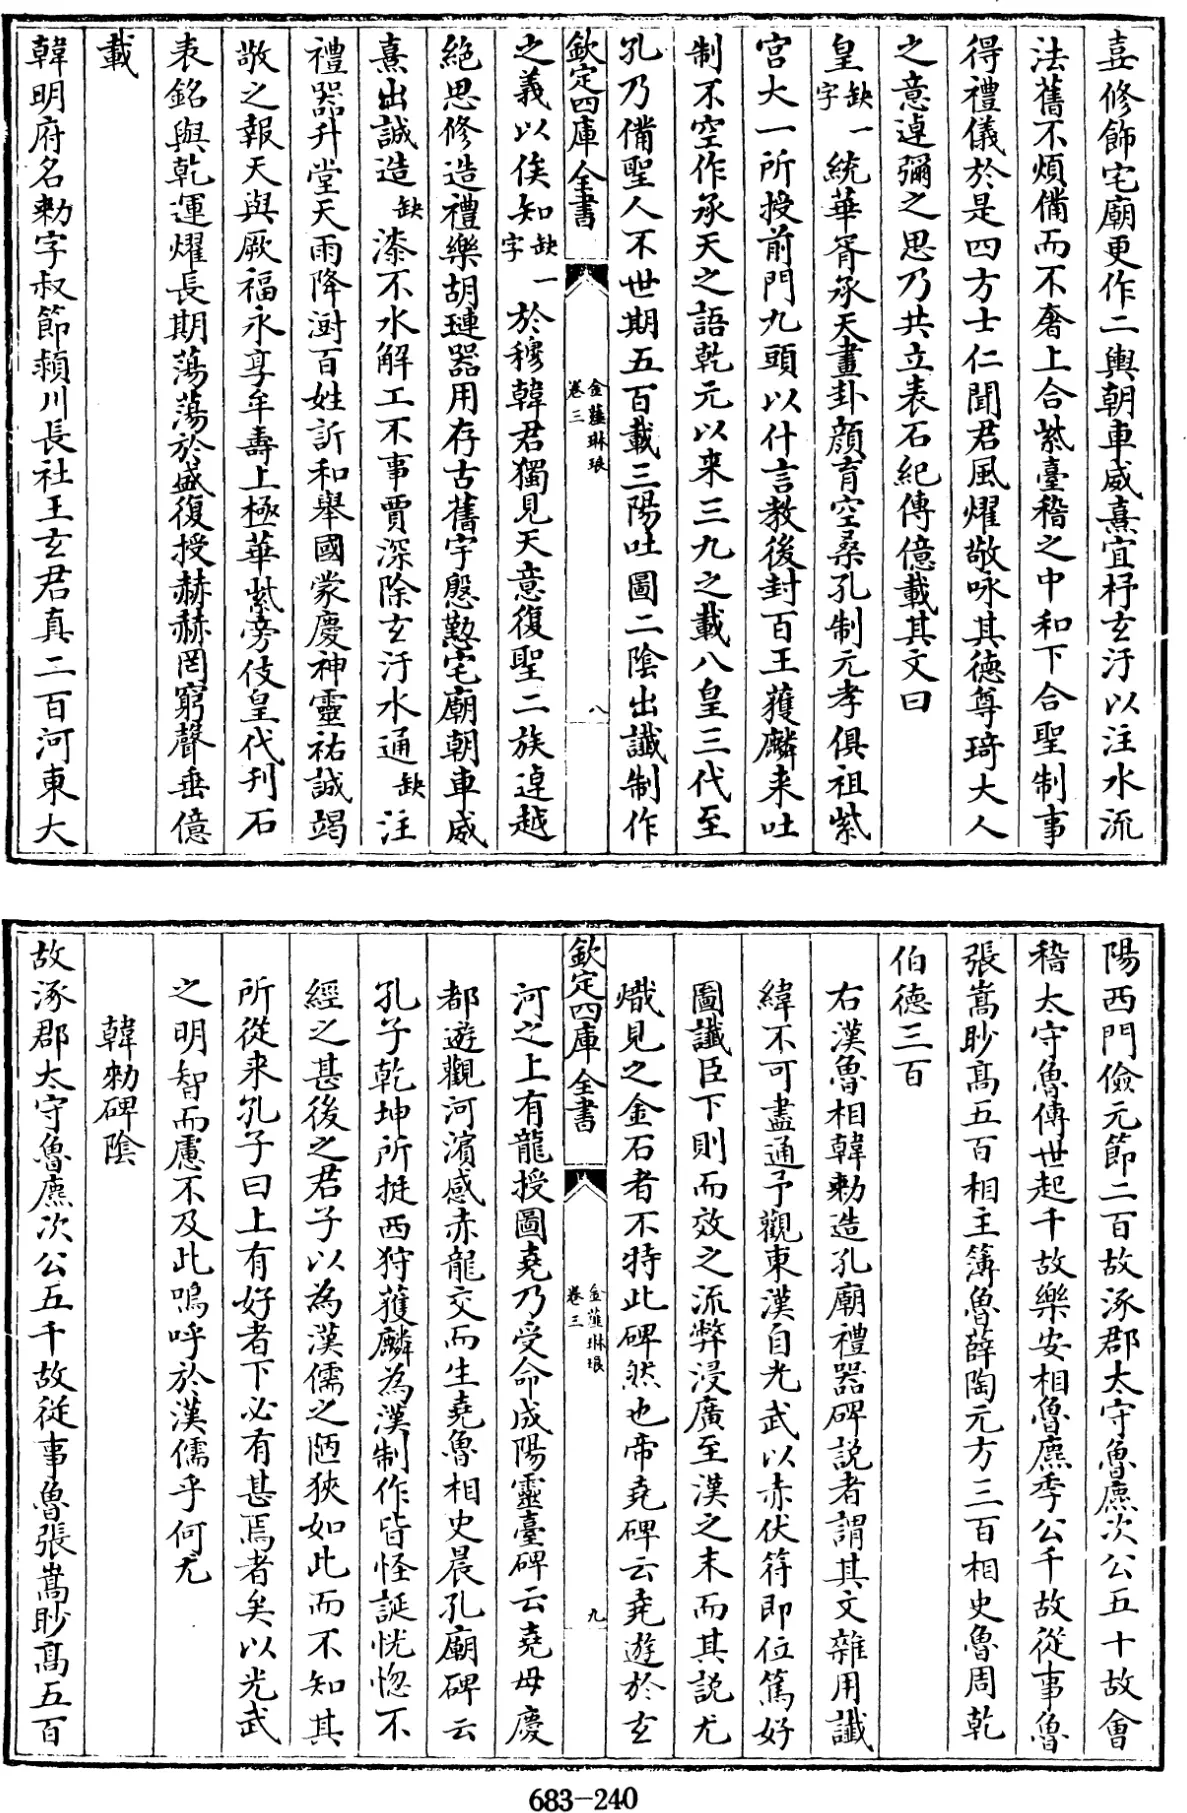 喜修飾宅廟更作二輿朝車威熹宜杼玄汙以注水流
法舊不煩備而不奢上合紫臺稽之中和下合聖制事
得禮儀於是四方士仁聞君風燿敬咏其德尊琦大人
之意逴彌之思乃共立表石紀傳億載其文曰
皇缺一字統華胥承天畫卦顔育空桑孔制元孝俱祖紫
宮大一所授前門九頭以什言教後封百王獲麟来吐
制不空作承天之語乾元以来三九之載八皇三代至
孔乃備聖人不世期五百載三陽吐圖二陰出讖制作
欽定四庫全書
金薤琳琅
卷三
八
之義以俟知缺一字於穆韓君獨見天意復聖二族逴越
絶思修造禮樂胡璉器用存古舊宇慇懃宅廟朝車威
熹出誠造缺漆不水解工不事賈深除玄汙水通缺注
禮器升堂天雨降澍百姓訢和舉國蒙慶神靈祐誠竭
敬之報天與厥福永享牟壽上極華紫旁伎皇代刋石
表銘與乾運燿長期蕩蕩於盛復授赫赫罔窮聲垂億
載
韓明府名勑字叔節頴川長社王玄君真二百河東大
陽西門儉元節二百故涿郡太守魯麃次公五十故會
稽太守魯傅世起千故樂安相魯麃季公千故從事魯
張嵩眇髙五百相主簿魯薛陶元方三百相史魯周乾
伯德三百
右漢魯相韓勑造孔廟禮器碑説者謂其文雜用讖
緯不可盡通予觀東漢自光武以赤伏符即位篤好
圖讖臣下則而效之流弊浸廣至漢之末而其説尤
熾見之金石者不特此碑然也帝堯碑云堯遊於玄
欽定四庫全書
金薤琳琅
卷三
九
河之上有龍授圖堯乃受命成陽靈臺碑云堯母慶
都遊觀河濱感赤龍交而生堯魯相史晨孔廟碑云
孔子乾坤所挺西狩獲麟為漢制作皆怪誕恍惚不
經之甚後之君子以為漢儒之陋狹如此而不知其
所從来孔子曰上有好者下必有甚焉者矣以光武
之明智而慮不及此嗚呼於漢儒乎何尤
韓勑碑陰
故涿郡太守魯麃次公五千故從事魯張嵩眇髙五百
683-240